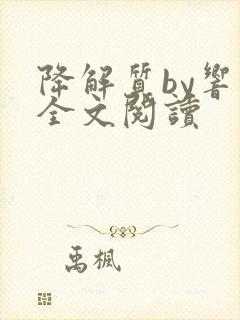 降解质by響
全文閱讀
禹楓